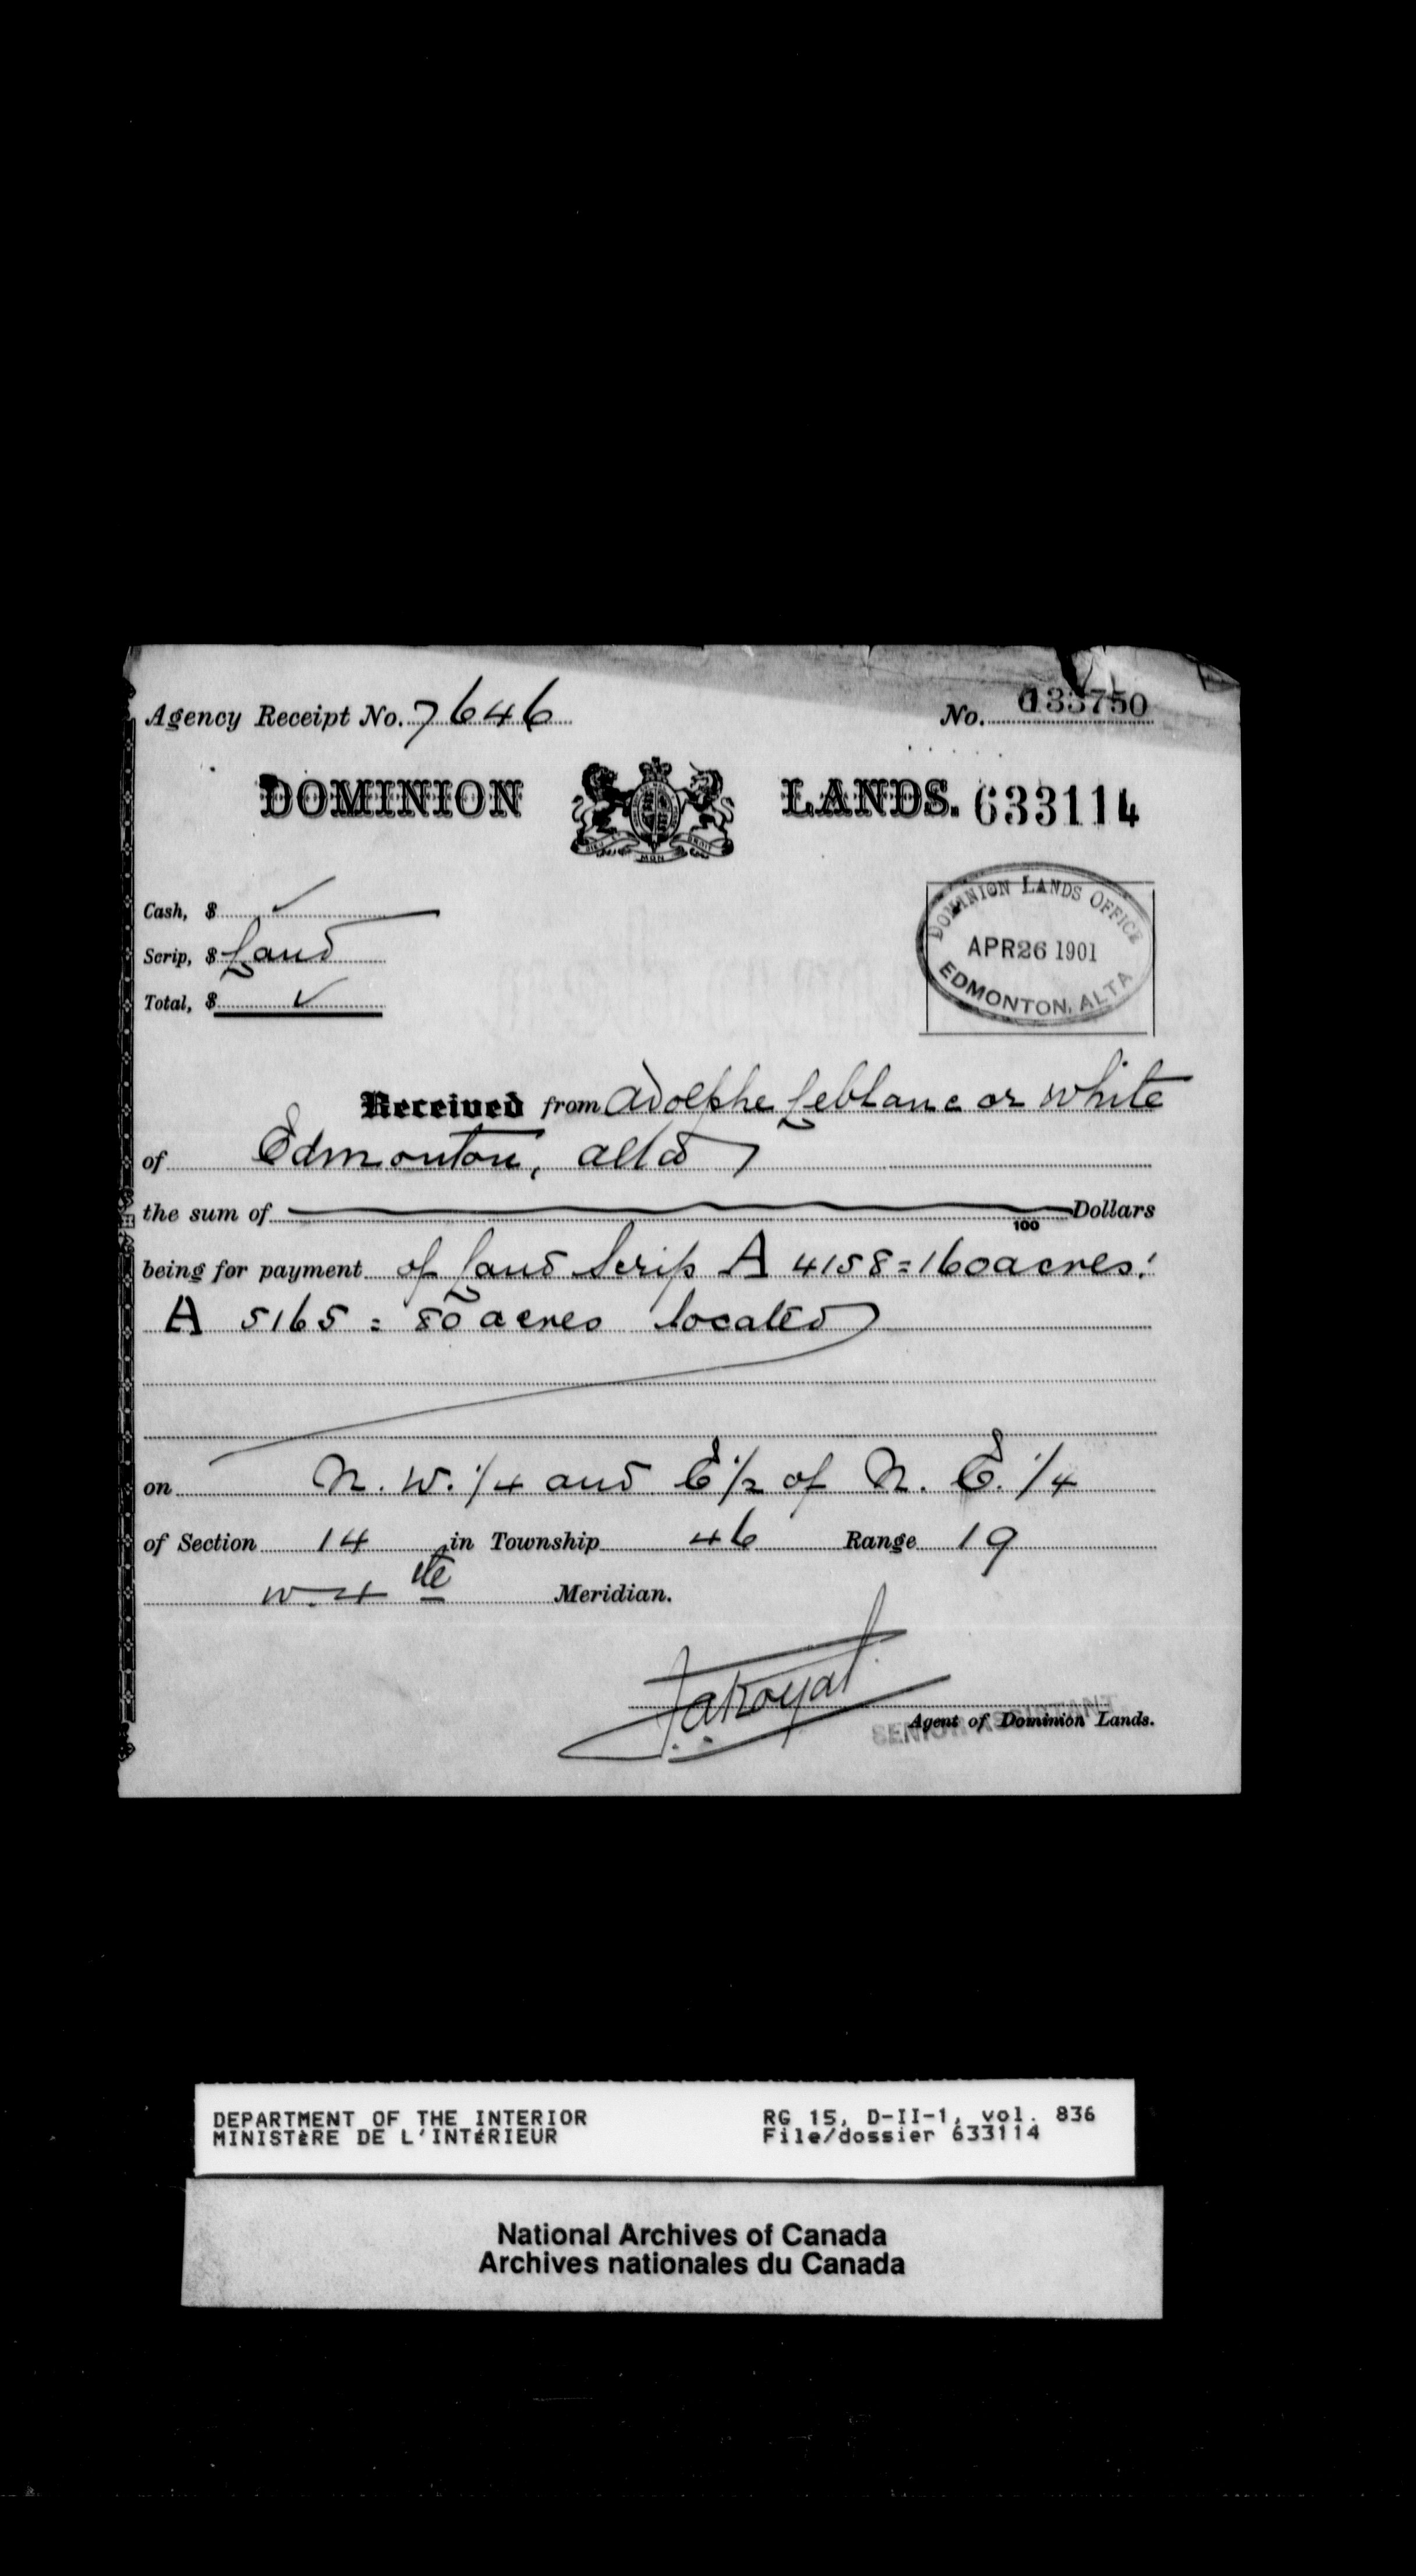 Agency Receipt No. 7646 No. 133750
DOMINION LANDS. 633114
DIEU ET MON DROIT
Cash, $ ✓
Scrip, $ Land
Total, $ ✓
DOMINION LANDS OFFICE
APR 26 1901
EDMONTON, ALTA
Received from Adolphe Leblanc or White
of Edmonton, Alta
the sum of Dollars
100
being for payment of Land Scrip A 4158 = 160 acres:
A 5165 = 80 acres located
on N. W. 1/4 and E 1/2 of N. E. 1/4
of Section 14 in Township 46 Range 19
W. 4th Meridian.
J. A. Royal
SENIOR ASSISTANT
Agent of Dominion Lands.
DEPARTMENT OF THE INTERIOR RG 15, D-II-1, vol. 836
MINISTèRE DE L'INTéRIEUR File/dossier 633114
National Archives of Canada
Archives nationales du Canada